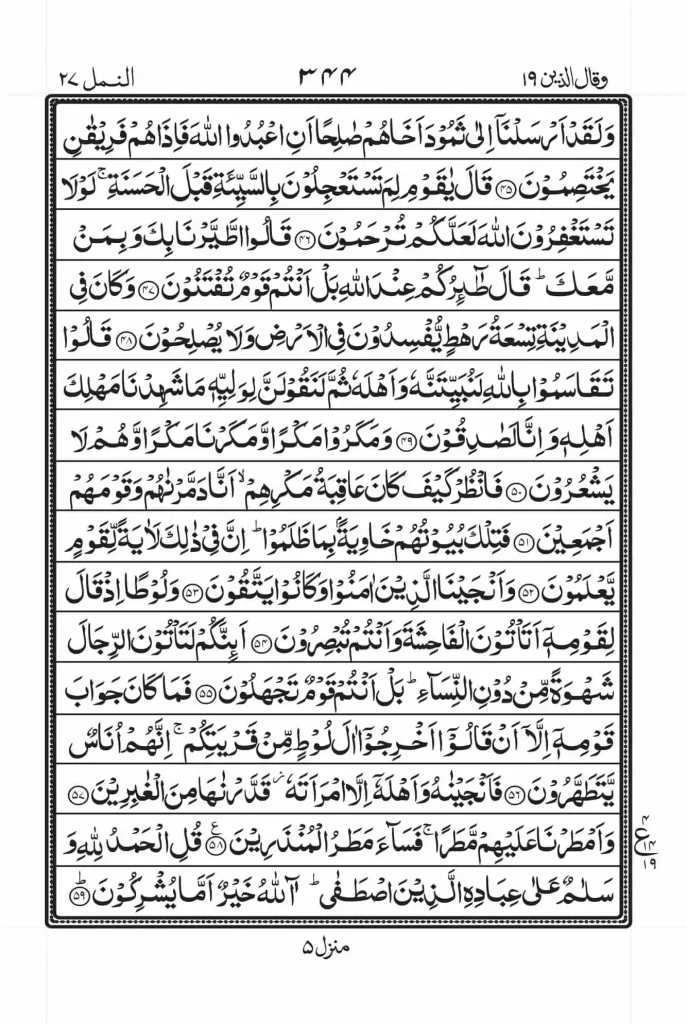 وقال الذین ۱۹ ۳۴۴ النمل ۲۷
وَلَقَدۡ اَرۡسَلۡنَاۤ اِلٰی ثَمُوۡدَ اَخَاهُمۡ صٰلِحًا اَنِ اعۡبُدُوا اللّٰهَ فَاِذَا هُمۡ فَرِیۡقٰنِ
یَخۡتَصِمُوۡنَ ﴿۴۵﴾ قَالَ یٰقَوۡمِ لِمَ تَسۡتَعۡجِلُوۡنَ بِالسَّیِّئَةِ قَبۡلَ الۡحَسَنَةِ ۚ لَوۡلَا
تَسۡتَغۡفِرُوۡنَ اللّٰهَ لَعَلَّکُمۡ تُرۡحَمُوۡنَ ﴿۴۶﴾ قَالُوا اطَّیَّرۡنَا بِكَ وَ بِمَنۡ
مَّعَكَ ؕ قَالَ طٰٓئِرُکُمۡ عِنۡدَ اللّٰهِ بَلۡ اَنۡتُمۡ قَوۡمٌ تُفۡتَنُوۡنَ ﴿۴۷﴾ وَ کَانَ فِی
الۡمَدِیۡنَةِ تِسۡعَةُ رَهۡطٍ یُّفۡسِدُوۡنَ فِی الۡاَرۡضِ وَلَا یُصۡلِحُوۡنَ ﴿۴۸﴾ قَالُوۡا
تَقَاسَمُوۡا بِاللّٰهِ لَنُبَیِّتَنَّهٗ وَ اَهۡلَهٗ ثُمَّ لَنَقُوۡلَنَّ لِوَلِیِّهٖ مَا شَهِدۡنَا مَهۡلِكَ
اَهۡلِهٖ وَ اِنَّا لَصٰدِقُوۡنَ ﴿۴۹﴾ وَ مَکَرُوۡا مَکۡرًا وَّ مَکَرۡنَا مَکۡرًا وَّ هُمۡ لَا
یَشۡعُرُوۡنَ ﴿۵۰﴾ فَانۡظُرۡ کَیۡفَ کَانَ عَاقِبَةُ مَکۡرِهِمۡ ۙ اَنَّا دَمَّرۡنٰهُمۡ وَقَوۡمَهُمۡ
اَجۡمَعِیۡنَ ﴿۵۱﴾ فَتِلۡكَ بُیُوۡتُهُمۡ خَاوِیَةًۢ بِمَا ظَلَمُوۡا ؕ اِنَّ فِیۡ ذٰلِكَ لَاٰیَةً لِّقَوۡمٍ
یَّعۡلَمُوۡنَ ﴿۵۲﴾ وَ اَنۡجَیۡنَا الَّذِیۡنَ اٰمَنُوۡا وَ کَانُوۡا یَتَّقُوۡنَ ﴿۵۳﴾ وَ لُوۡطًا اِذۡ قَالَ
لِقَوۡمِهٖۤ اَتَاۡتُوۡنَ الۡفَاحِشَةَ وَ اَنۡتُمۡ تُبۡصِرُوۡنَ ﴿۵۴﴾ اَئِنَّکُمۡ لَتَاۡتُوۡنَ الرِّجَالَ
شَهۡوَةً مِّنۡ دُوۡنِ النِّسَآءِ ؕ بَلۡ اَنۡتُمۡ قَوۡمٌ تَجۡهَلُوۡنَ ﴿۵۵﴾ فَمَا کَانَ جَوَابَ
قَوۡمِهٖۤ اِلَّاۤ اَنۡ قَالُوۡۤا اَخۡرِجُوۡۤا اٰلَ لُوۡطٍ مِّنۡ قَرۡیَتِکُمۡ ۚ اِنَّهُمۡ اُنَاسٌ
یَّتَطَهَّرُوۡنَ ﴿۵۶﴾ فَاَنۡجَیۡنٰهُ وَ اَهۡلَهٗۤ اِلَّا امۡرَاَتَهٗ ۫ قَدَّرۡنٰهَا مِنَ الۡغٰبِرِیۡنَ ﴿۵۷﴾
وَ اَمۡطَرۡنَا عَلَیۡهِمۡ مَّطَرًا ۚ فَسَآءَ مَطَرُ الۡمُنۡذَرِیۡنَ ﴿۵۸﴾ قُلِ الۡحَمۡدُ لِلّٰهِ وَ
سَلٰمٌ عَلٰی عِبَادِهِ الَّذِیۡنَ اصۡطَفٰی ؕ آٰللّٰهُ خَیۡرٌ اَمَّا یُشۡرِکُوۡنَ ﴿۵۹﴾
۴
ع
۱۴
۱۹
منزل ۵